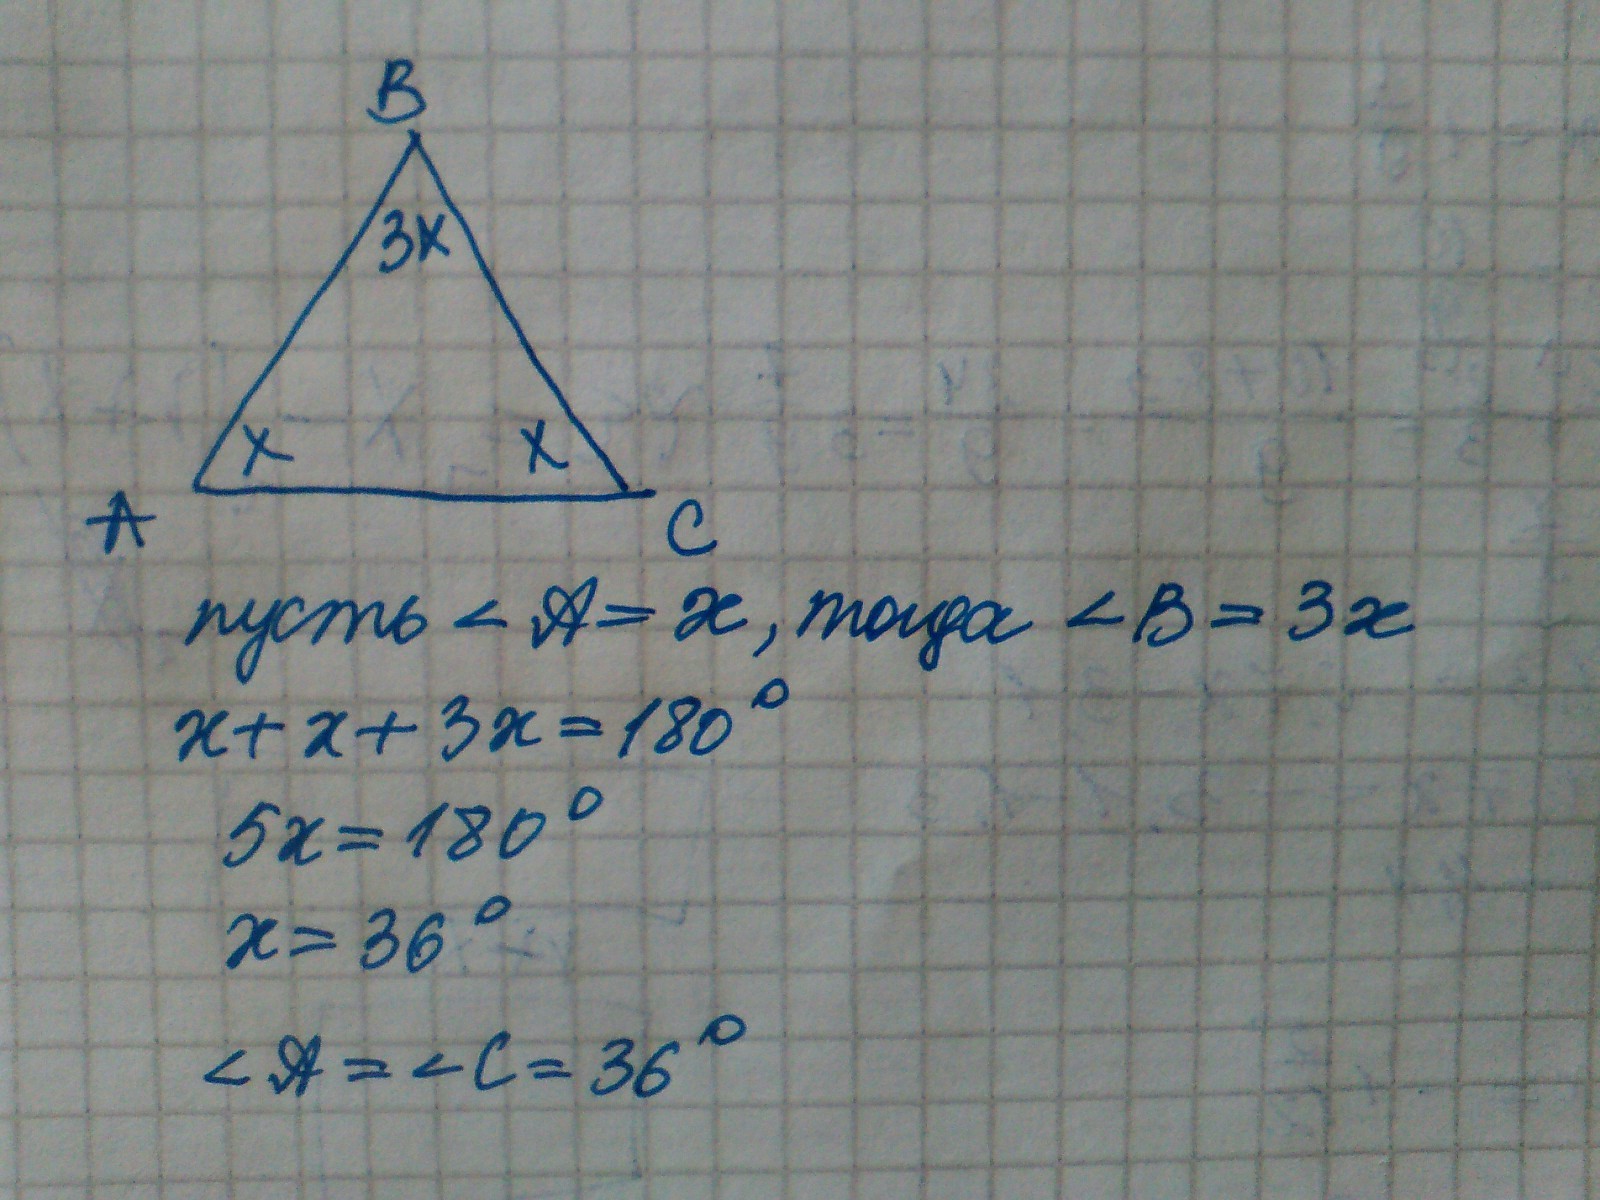 B
3x
x x
A C
пусть <A = x, тогда <B = 3x
x + x + 3x = 180°
5x = 180°
x = 36°
<A = <C = 36°